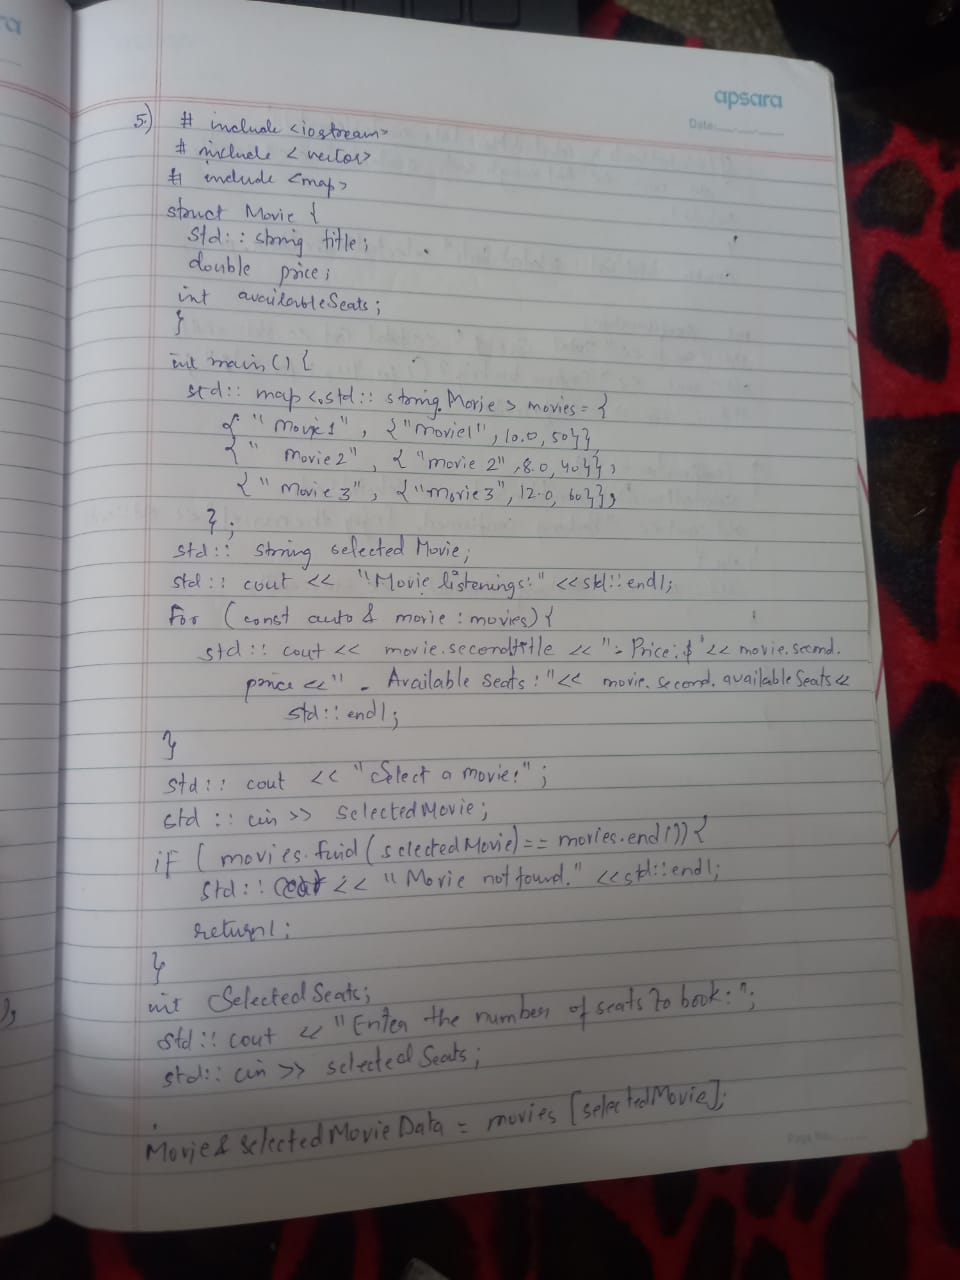 ra
apsara
Date:
5.) # include <iostream>
# include < vector>
# include <map>
struct Movie {
std:: string title;
double price;
int availableSeats;
}
int main () {
std:: map <std:: string, Movie > movies = {
{ " Movie 1" , { "movie1" , 10.0, 50}},
{ " Movie 2" , { "movie 2" , 8.0, 40}},
{ " Movie 3" , { "movie 3" , 12.0, 60}},
} ;
std:: string selected Movie;
std:: cout << "Movie listenings:" <<std::endl;
For (const auto & movie : movies) {
std :: cout << movie.second.title << " - Price: $ "<< movie.second.
price << " - Available Seats : "<< movie. second. availableSeats <<
std:: endl;
}
std:: cout << "Select a movie:" ;
std :: cin >> SelectedMovie;
if ( movies.find (selectedMovie) == movies.end()) {
std:: cout << "Movie not found." <<std::endl;
return 1;
}
int SelectedSeats;
std :: cout << "Enter the number of seats to book: ";
std:: cin >> selectedSeats;
Movie & selectedMovieData = movies [selectedMovie];
Page No.
),